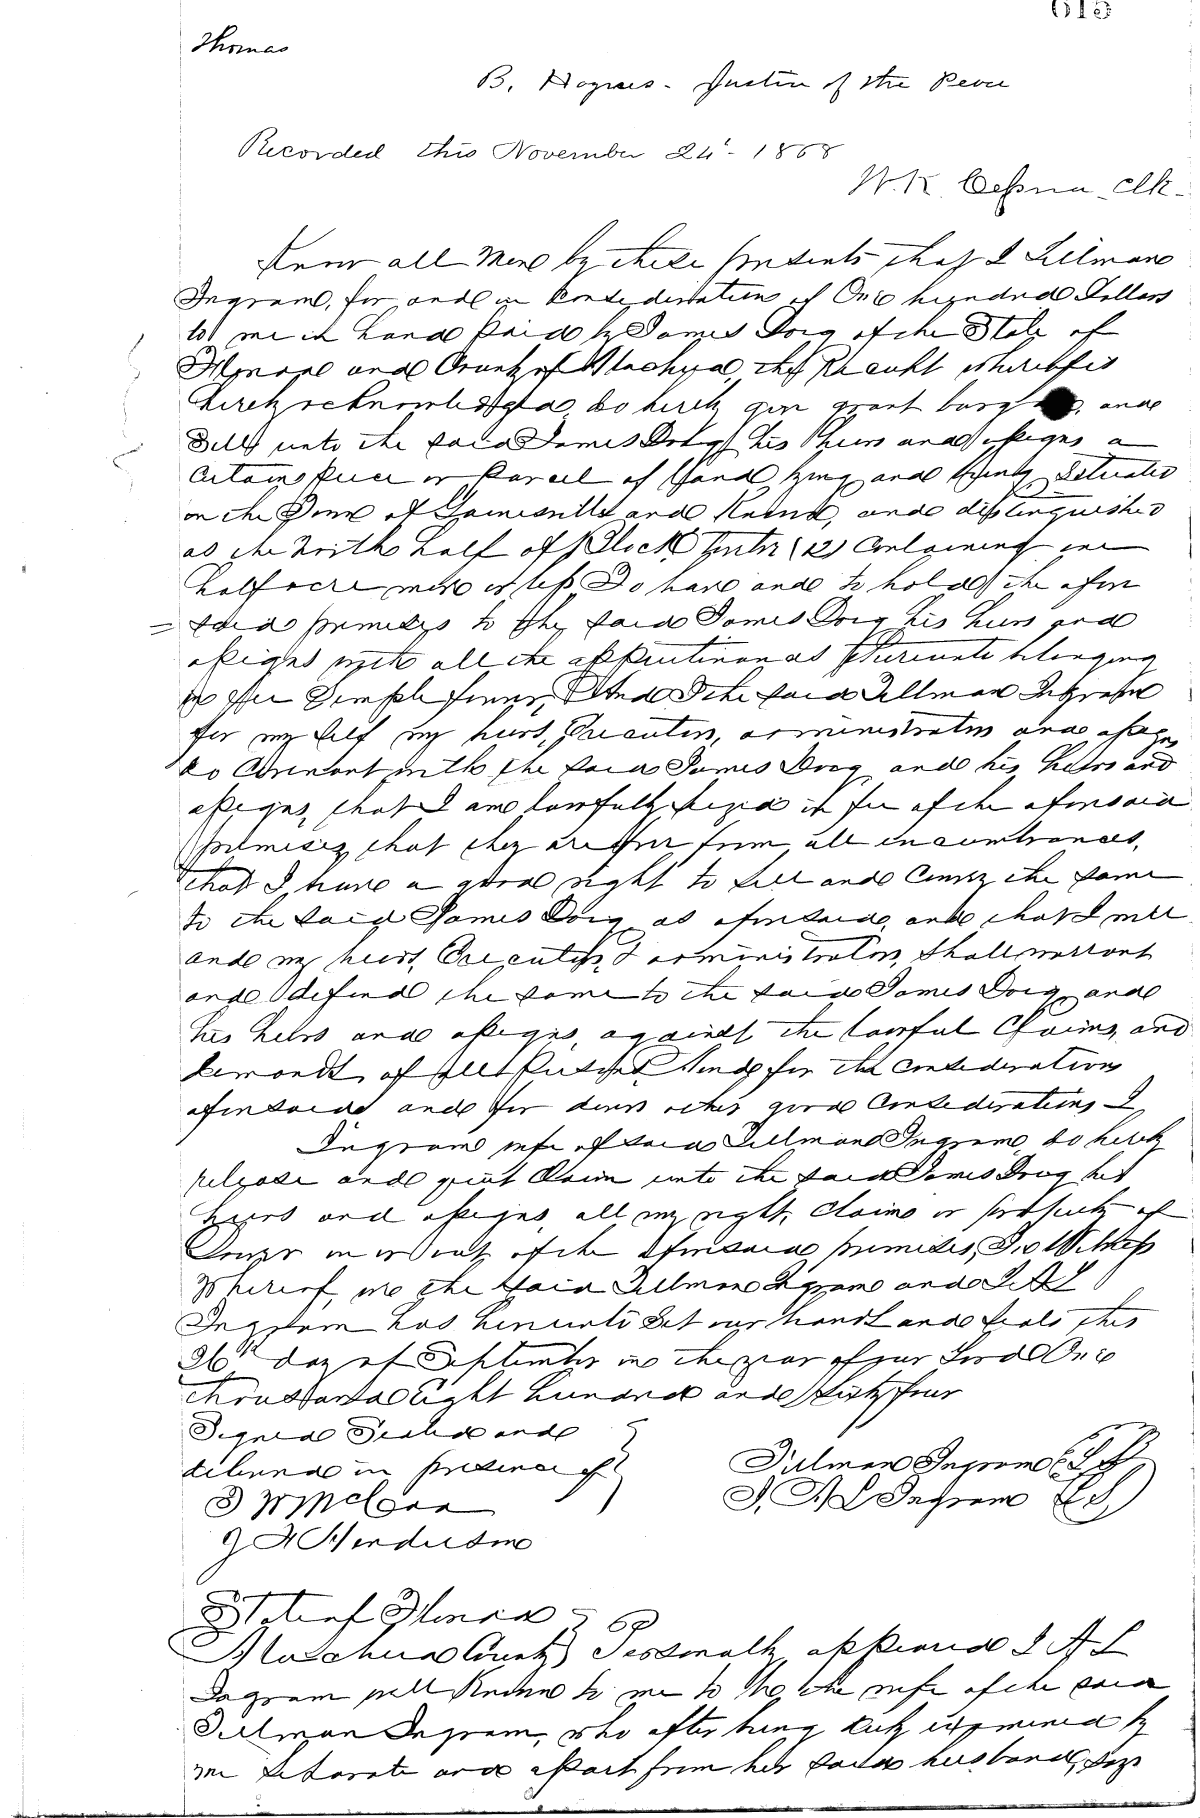 615
Thomas
B. Haynes - Justice of the Peace
Recorded this November 24' - 1868
W. K. Cessna - Clk -
Know all Men by these presents that I Tillman
Ingram, for and in Consideration of One hundred Dollars
to me in hand paid by James Doig of the State of
Florida and County of Alachua, the Receipt whereof is
hereby acknowledged do hereby give grant bargain and
Sell unto the said James Doig his heirs and assigns a
Certain piece or Parcel of Land lying and being Situated
in the Town of Gainesville and Known, and distinguished
as the North half of Block (12) Containing one
half acre more or less To have and to hold the afore
said premises to the said James Doig his heirs and
assigns with all the appurtenances belonging
in fee Simple And I the said Tillman Ingram
for my self my heirs, Executors, administrators and assigns
do Covenant with the said James Doig and his heirs and
assigns, that I am lawfully seized in fee of the aforesaid
premises, that they are free from all incumbrances,
that I have a good right to sell and Convey the same
to the said James Doig as aforesaid, and that I will
and my heirs, Executors, & administrators, Shall warrant
and defend the same to the said James Doig and
his heirs and assigns, against the lawful Claims, and
demands of all Persons And for the consideration
aforesaid and for divers other good Considerations I
Ingram wife of said Tillman Ingram, do hereby
release and quit Claim unto the said James Doig his
heirs and assigns, all my right, Claim or
Dower in or out of the aforesaid premises, In Witness
Whereof, we the said Tillman Ingram and
Ingram has hereunto Set our hands and seals this
26th day of September in the year of our Lord One
thousand Eight hundred and sixty four
Signed Sealed and
delivered in presence of
Tillman Ingram (L S)
Ingram (L S)
State of Florida
Alachua County Personally appeared
Ingram well Known to me to be the wife of the said
Tillman Ingram, who after being duly examined by
me separate and apart from her said husband, says